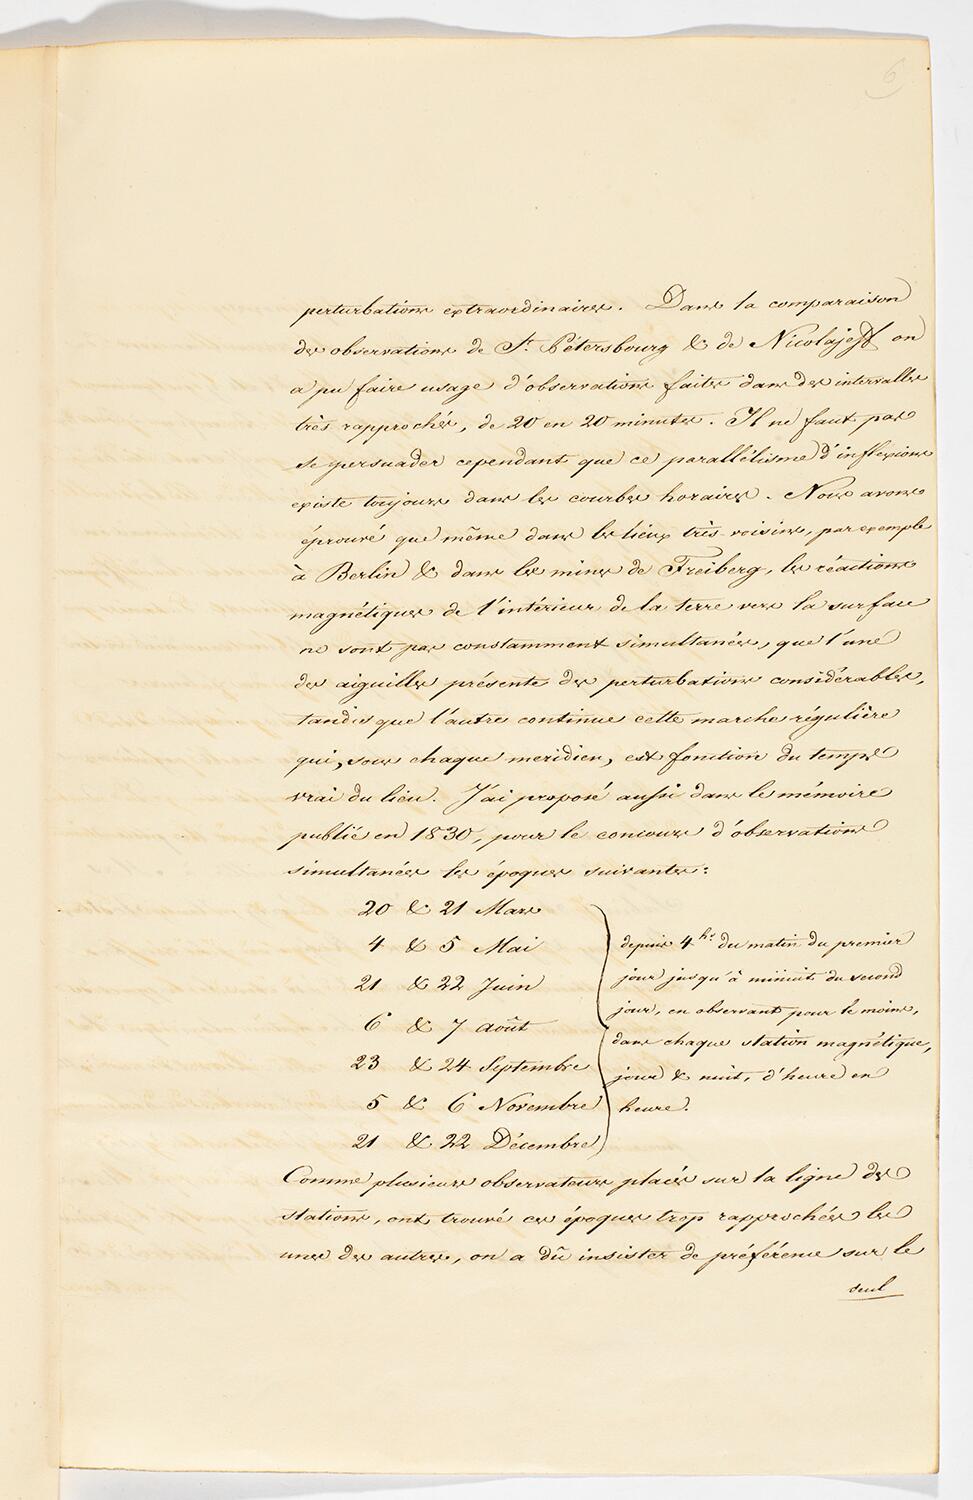 6
perturbations extraordinaires. Dans la comparaison
des observations de St. Pétersbourg & de Nicolajeff on
a pu faire usage d'observations faites dans des intervalles
très rapprochés, de 20 en 20 minutes. Il ne faut pas
se persuader cependant que ce parallélisme d'inflexions
existe toujours dans les courbes horaires. Nous avons
éprouvé que même dans les lieux très-voisins, par exemple
à Berlin & dans les mines de Freiberg, les réactions
magnétiques de l'intérieur de la terre vers la surface
ne sont pas constamment simultanées, que l'une
des aiguilles présente des perturbations considérables,
tandis que l'autre continue cette marche régulière
qui, sous chaque meridien, est fonction du temps
vrai du lieu. J'ai proposé aussi dans le mémoire
publié en 1830, pour le concours d'observations
simultanées les époques suivantes:
20 & 21 Mars
4 & 5 Mai
21 & 22 Juin
6 & 7 Août
23 & 24 Septembre
5 & 6 Novembre
21 & 22 Décembre
depuis 4 hs. du matin du premier
jour jusqu'à minuit du second
jour, en observant pour le moins,
dans chaque station magnétique,
jour & nuit, d'heure en
heure.
Comme plusieurs observateurs placés sur la ligne des
stations, ont trouvé ces époques trop rapprochées les
unes des autres, on a dû insister de préférence sur le
seul